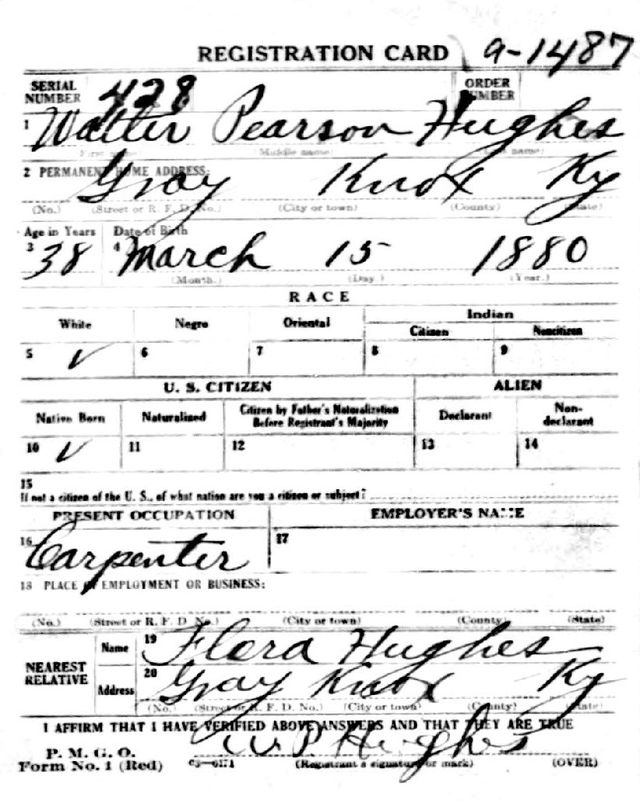 REGISTRATION CARD 9-1487
SERIAL NUMBER 428 ORDER NUMBER
1 Walter Pearson Hughes
First name Middle name Last name
2 PERMANENT HOME ADDRESS:
Gray Knox Ky
(No.) (Street or R. F. D. No.) (City or town) (County) (State)
Age in Years Date of Birth
3 38 4 March 15 1880
(Month.) (Day.) (Year.)
RACE
White Negro Oriental Indian
Citizen Noncitizen
5 ✓ 6 7 8 9
U. S. CITIZEN ALIEN
Native Born Naturalized Citizen by Father's Naturalization Before Registrant's Majority Declarant Non-declarant
10 ✓ 11 12 13 14
15
If not a citizen of the U. S., of what nation are you a citizen or subject?
PRESENT OCCUPATION EMPLOYER'S NAME
16 Carpenter 17
18 PLACE OF EMPLOYMENT OR BUSINESS:
(No.) (Street or R. F. D. No.) (City or town) (County) (State)
NEAREST RELATIVE Name 19 Flora Hughes
Address 20 Gray Knox Ky
(No.) (Street or R. F. D. No.) (City or town) (County) (State)
I AFFIRM THAT I HAVE VERIFIED ABOVE ANSWERS AND THAT THEY ARE TRUE
W P Hughes
P. M. G. O.
Form No. 1 (Red) (Registrant's signature or mark) (OVER)